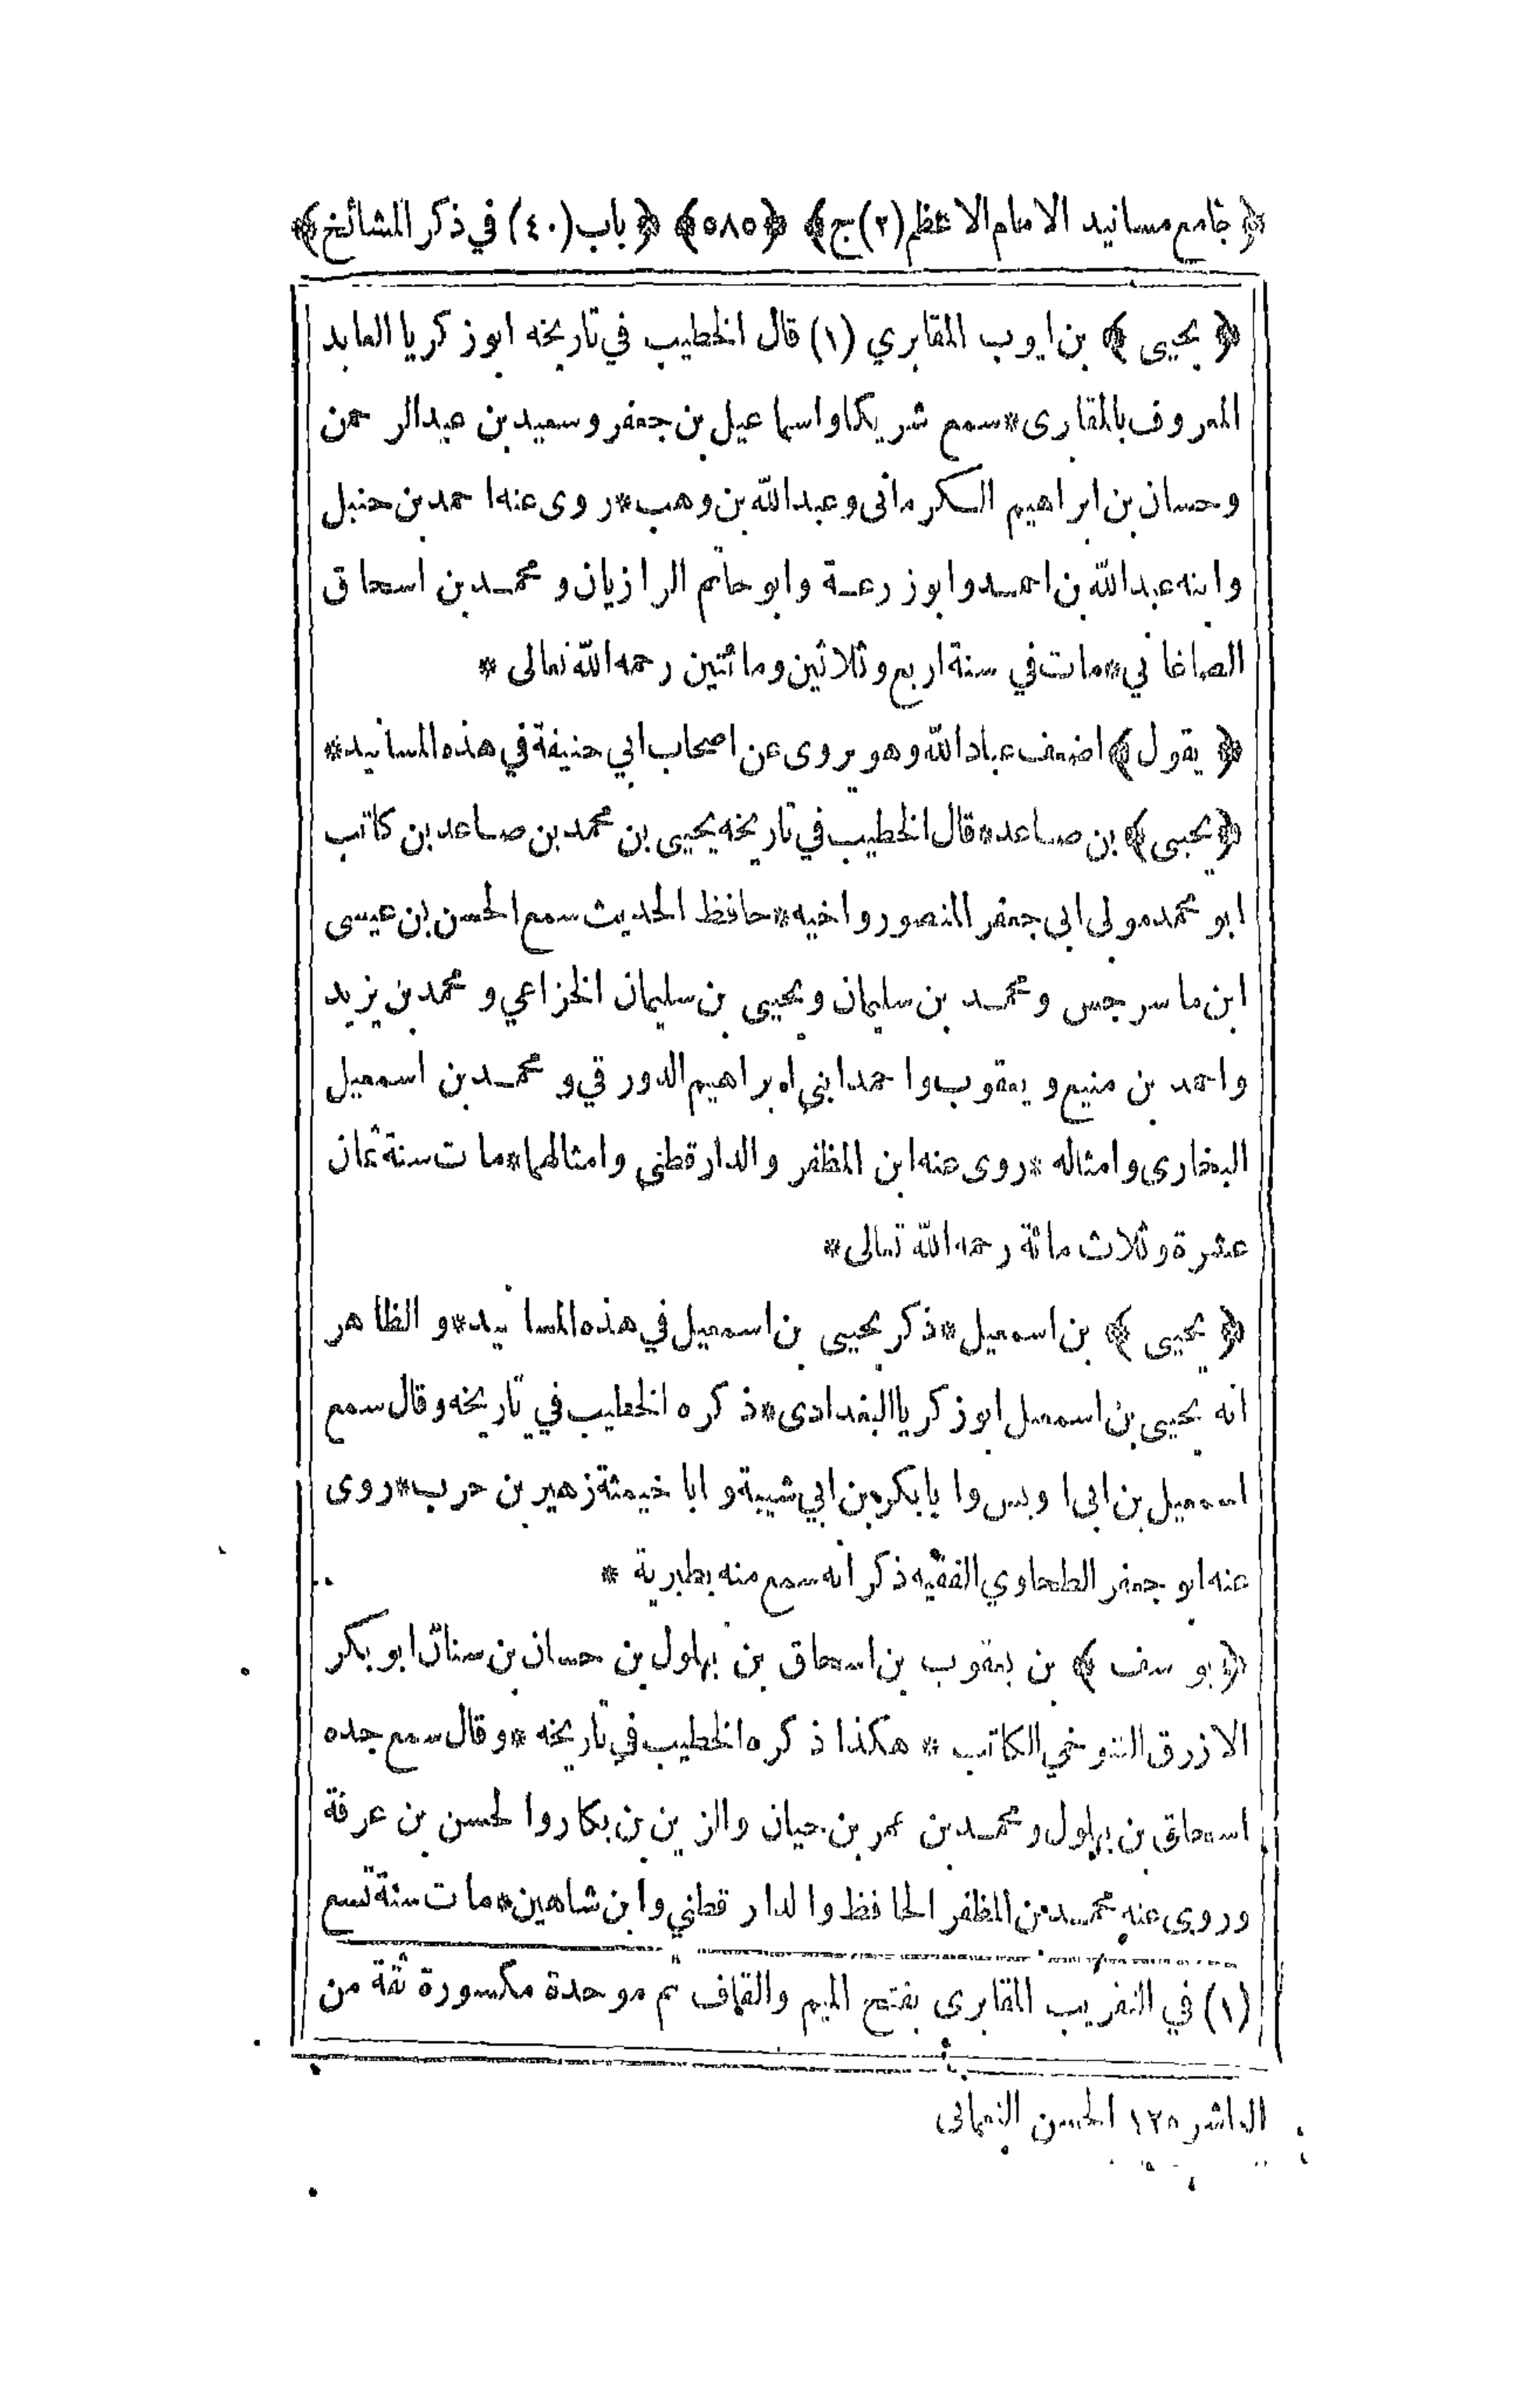 ﴿ جامع مسانيد الامام الاعظم (٢) ج ﴾ ﴿ ٥٨٥ ﴾ ﴿ باب (٤٠) في ذكر المشائخ ﴾
﴿ يحيى ﴾ بن ايوب المقابري (١) قال الخطيب في تاريخه ابوزكريا العابد
المعروف بالمقارى * سمع شريكا واسماعيل بن جعفر وسعيد بن عبدالرحمن
وحسان بن ابراهيم الكرمانى وعبدالله بن وهب * روى عنه احمد بن حنبل
وابنه عبدالله بن احمد وابوزرعة وابوحاتم الرازيان ومحمد بن اسحاق
الصاغاني * مات في سنة اربع وثلاثين ومائتين رحمه الله تعالى *
﴿ يقول ﴾ اضعف عباد الله وهو يروى عن اصحاب ابي حنيفة في هذه المسانيد *
﴿ يحيى ﴾ بن صاعد * قال الخطيب في تاريخه يحيى بن محمد بن صاعد بن كاتب
ابو محمد مولى ابى جعفر المنصور واخيه * حافظ الحديث سمع الحسن بن عيسى
ابن ماسرجس ومحمد بن سليمان ويحيى بن سليمان الخزاعي ومحمد بن يزيد
واحمد بن منيع ويعقوب واحمد ابني ابراهيم الدورقي ومحمد بن اسمعيل
البخارى وامثاله * روى عنه ابن المظفر والدارقطني وامثالهما * مات سنة ثمان
عشرة وثلاث مائة رحمه الله تعالى *
﴿ يحيى ﴾ بن اسمعيل * ذكر يحيى بن اسمعيل في هذه المسانيد * والظاهر
انه يحيى بن اسمعيل ابوزكريا البغدادى * ذكره الخطيب في تاريخه وقال سمع
اسمعيل بن ابى اويس وابابكر بن ابي شيبة وابا خيثمة زهير بن حرب * روى
عنه ابو جعفر الطحاوي الفقيه ذكر انه سمع منه بطبرية *
﴿ يوسف ﴾ بن يعقوب بن اسحاق بن بهلول بن حسان بن سنان ابوبكر
الازرق التنوخي الكاتب * هكذا ذكره الخطيب في تاريخه * وقال سمع جده
اسحاق بن بهلول ومحمد بن عمر بن حيان والزبن بن بكار والحسن بن عرفة
وروى عنه محمد بن المظفر الحافظ والدار قطني وابن شاهين * مات سنة تسع
(١) في التقريب المقابرى بفتح الميم والقاف ثم موحدة مكسورة ثقة من
الحسن النعمانى